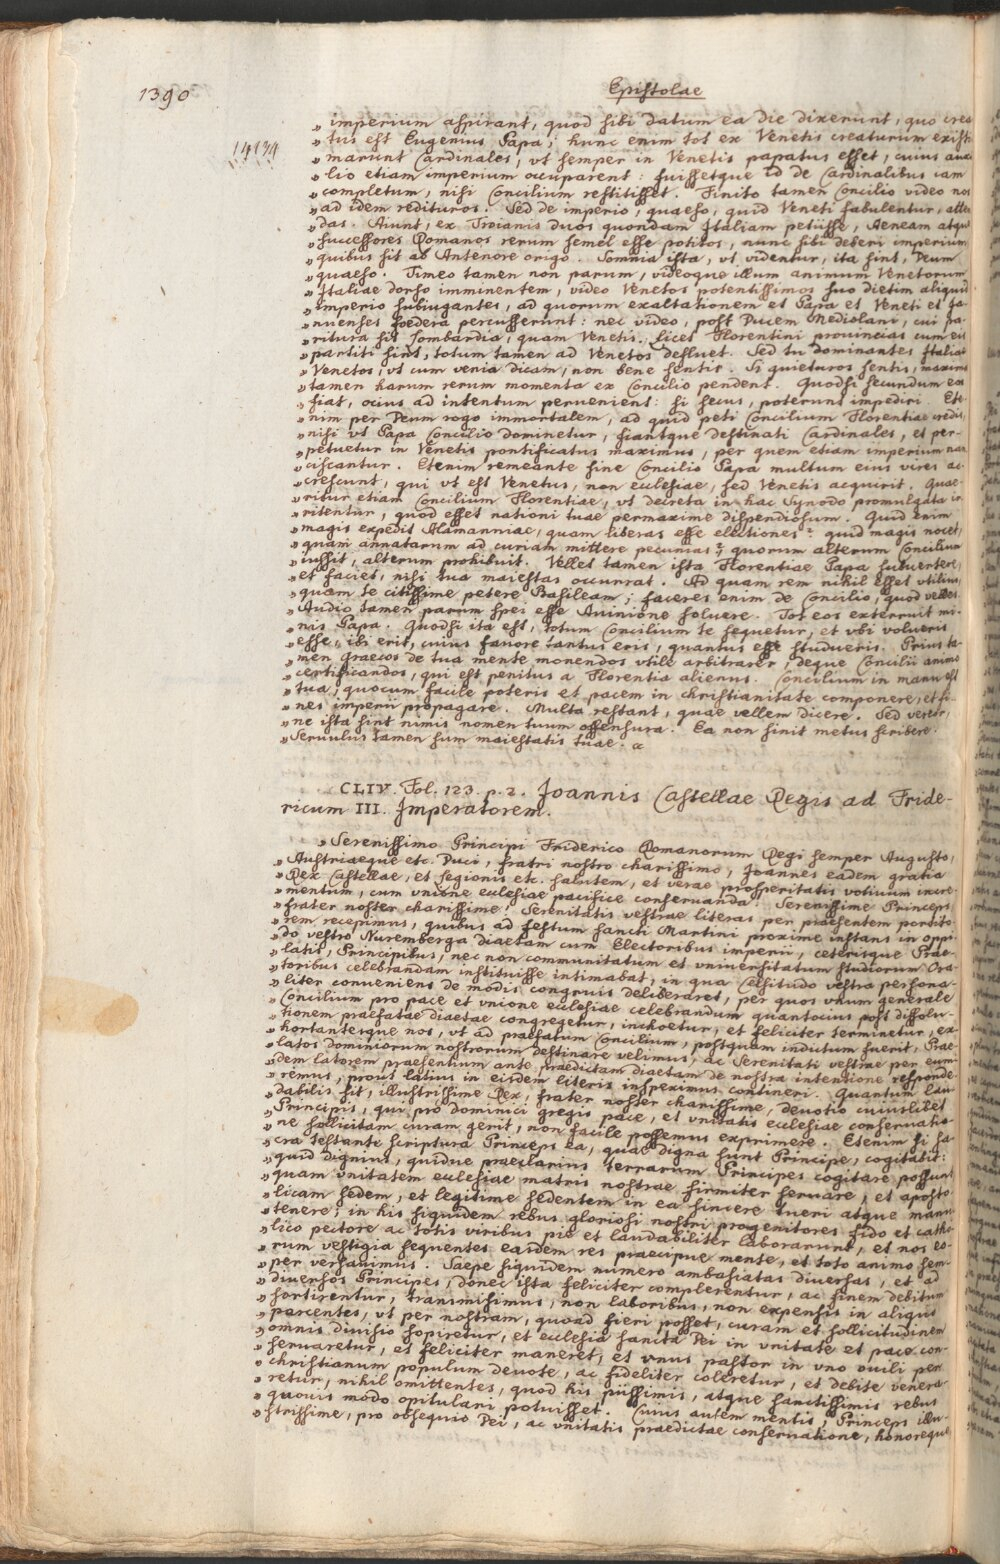 1390
Epistolae
„ imperium aspirant, quod sibi datum ea die dixerunt, quo crea
14134
„ tus est Eugenius Papa; hunc enim tot ex Venetis creaturum existi
„ marunt Cardinales, vt semper in Venetis papatus esset, cuius auxi
„ lio etiam imperium occuparent: fuissetque id de Cardinalibus iam
„ completum, nisi Concilium restitisset. Finito tamen Concilio video nos
„ ad idem redituros. Sed de imperio, quaeso, quid Veneti fabulentur, atten
„ das. Aiunt, ex Troianis duos quondam Italiam petiisse, Aeneam atque
„ successores Romanos rerum semel esse potitos, nunc sibi deberi imperium
„ quibus sit ab Antenore origo. Somnia ista, vt videntur, ita sint, Deum
„ quaeso. Timeo tamen non parum, videoque illum animum Venetorum
„ Italiae dorso imminentem, video Venetos potentissimos suo dietim aliquid
„ imperio subiugantes, ad quorum exaltationem et Papa et Veneti et Ja-
„ nuenses foedera percusserunt: nec video, post Ducem Mediolani, cui pa-
„ ritura sit Lombardia, quam Venetis. Licet Florentini prouincias cum eis
„ partiti sint, totum tamen ad Venetos defluet. Sed tu dominantes Italiae
„ Venetos, vt cum venia dicam, non bene sentis. Si quieturos sentis, maxima
„ tamen harum rerum momenta ex Concilio pendent. Quodsi secundum eos
„ fiat, ocius ad intentum peruenient: si secus, poterunt impediri. Ete-
„ nim per Deum rogo immortalem, ad quid peti Concilium Florentiae credis,
„ nisi vt Papa Concilio dominetur, fiantque destinati Cardinales, et per-
„ petuetur in Venetis pontificatus maximus, per quem etiam imperium nan
„ ciscantur. Etenim remeante sine Concilio Papa multum eius vires ac-
„ crescunt, qui vt est Venetus, non ecclesiae, sed Venetis acquirit. Quae-
„ ritur etiam Concilium Florentiae, vt decreta in hac Synodo promulgata ir
„ ritentur, quod esset nationi tuae permaxime dispendiosum. Quid enim
„ magis expedit Alamanniae, quam liberas esse electiones? quid magis nocet,
„ quam annatarum ad curiam mittere pecunias?, quorum alterum Concilium
„ iussit, alterum prohibuit. Vellet tamen ista Florentiae Papa subuertere,
„ et faciet, nisi tua maiestas occurrat. Ad quam rem nihil esset vtilius,
„ quam te citissime petere Basileam; faceres enim de Concilio, quod velles.
„ Audio tamen parum spei esse Auinione soluere. Tot eos exterruit mi-
„ nis Papa. Quodsi ita est, totum Concilium te sequetur, et vbi volueris
„ esse, ibi erit, cuius fauore tantus eris, quantus esse studueris. Prius ta-
„ men Graecos de tua mente monendos vtile arbitrarer, deque Concilii animo
„ certificandos, qui est penitus a Florentia alienus. Concilium in manu est
„ tua, quocum facile poteris et pacem in christianitate componere, et fi-
„ nes imperii propagare. Multa restant, quae vellem dicere. Sed vereor,
„ ne ista sint nimis nomen tuum offensura. Ea non sinit metus scribere.
„ Seruulus tamen sum maiestatis tuae.
CLIV. Fol. 123. p. 2. Joannis Castellae Regis ad Fride-
ricum III. Imperatorem.
„ Serenissimo Principi Friderico Romanorum Regi semper Augusto,
„ Austriaeque etc. Duci, fratri nostro charissimo, Joannes eadem gratia
„ Rex Castellae, et Legionis etc. salutem, et verae prosperitatis votiuum incre-
„ mentum, cum vnione ecclesiae pacifice conseruanda. Serenissime Princeps
„ frater noster charissime! Serenitatis vestrae literas per praesentem portito-
„ rem recepimus, quibus ad festum sancti Martini proxime instans in oppi-
„ do vestro Nuremberga diaetam cum Electoribus imperii, ceterisque Prae-
„ latis, Principibus, nec non communitatum et vniuersitatum studiorum Ora-
„ toribus celebrandam instituisse intimabat, in qua Celsitudo vestra persona-
„ liter conueniens de modis congruis deliberaret, per quos vnum generale
„ Concilium pro pace et vnione ecclesiae celebrandum quantocius post dissolu-
„ tionem praefatae diaetae congregetur, inchoetur, et feliciter terminetur, ex-
„ hortantesque nos, vt ad praefatum Concilium, postquam indictum fuerit, Prae-
„ latos dominiorum nostrorum destinare velimus, ac Serenitati vestrae per eum-
„ dem latorem praesentium ante praedictam diaetam de nostra intentione responde-
„ remus, prout latius in eisdem literis inspeximus contineri. Quantum lau-
„ dabilis sit, illustrissime Rex, frater noster charissime, deuotio cuiuslibet
„ Principis, qui pro dominici gregis pace, et vnitatis ecclesiae conseruatio-
„ ne sollicitam curam gerit, non facile possemus exprimere. Etenim si sa-
„ cra testante scriptura Princeps ea, quae digna sunt Principe, cogitabit:
„ quid dignius, quidue praeclarius terrarum Principes cogitare possunt,
„ quam vnitatem ecclesiae matris nostrae firmiter seruare, et aposto-
„ licam sedem, et legitime sedentem in ea sincere tueri atque manu-
„ tenere; in his siquidem rebus gloriosi nostri progenitores fido et catho-
„ lico pectore ac totis viribus pie et laudabiliter laborarunt, et nos eo-
„ rum vestigia sequentes easdem res praecipue mente, et toto animo sem-
„ per versauimus. Saepe siquidem numero ambasiatas diuersas, et ad
„ diuersos Principes, donec ista feliciter complerentur, ac finem debitum
„ sortirentur, transmisimus, non laboribus, non expensis in aliquo
„ parcentes, vt per nostram, quoad fieri posset, curam et sollicitudinem
„ omnis diuisio sopiretur, et ecclesia sancta Dei in vnitate et pace con-
„ seruaretur, et feliciter maneret, et vnus pastor in vno ouili per
„ christianum populum deuote, ac fideliter coleretur, et debite venera-
„ retur, nihil omittentes, quod his piissimis, atque sanctissimis rebus
„ quouis modo opitulari potuisset. Cuius autem mentis, Princeps illu-
„ strissime, pro obsequio Dei, ac vnitatis praedictae conseruatione, honoreque